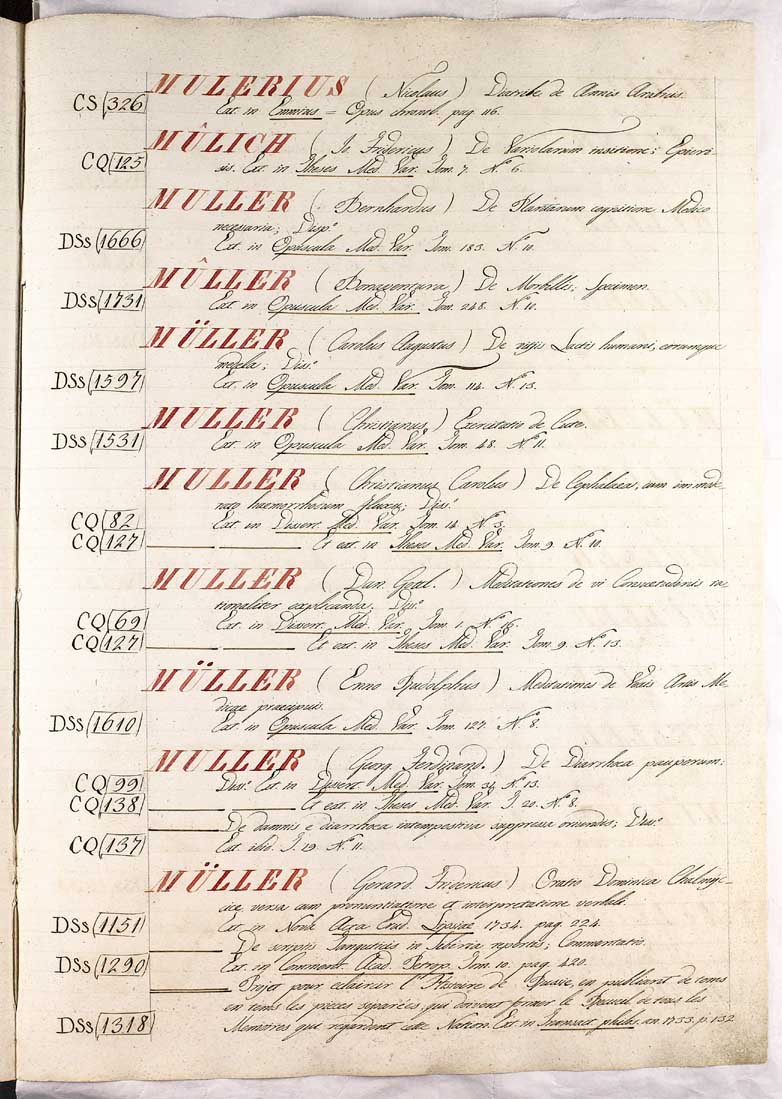 MULERIUS ( Nicolaus ) Diatribe de Annis Arabus.
CS 326 Ext. in Emmius = Opus chronol. pag. 116.
MÛLICH ( Io. Fridericus ) De Variolarum insitione; Epicri-
CQ 125 sis. Ext. in Theses Med. Var. Tom. 7. N.º 6.
MULLER ( Bernhardus ) De Plantarum cognitione Medico
necessaria; Disp.º
DSs 1666 Ext. in Opuscula Med. Var. Tom. 183. N.º 11.
MÛLLER ( Bonaventura ) De Morbillis; Specimen.
DSs 1731 Ext. in Opuscula Med. Var. Tom. 248. N.º 11.
MÜLLER ( Carolus Augustus ) De vitiis Lactis humani, eorumque
medela; Diss.º
DSs 1597 Ext. in Opuscula Med. Var. Tom. 114. N.º 13.
MULLER ( Christianus ) Exercitatio de Cute.
DSs 1531 Ext. in Opuscula Med. Var. Tom. 48. N.º 11.
MULLER ( Christianus Carolus ) De Cephalaea, cum immode-
rato haemorrhoidum fluxu; Diss.º
CQ 82 Ext. in Dissert. Med. Var. Tom. 14. N.º 3.
CQ 127 Et ext. in Theses Med. Var. Tom. 9. N.º 10.
MULLER ( Dan. Gotl. ) Meditationes de vi Consuetudinis ra-
tionaliter explicanda; Diss.º
CQ 69 Ext. in Dissert. Med. Var. Tom. 1. N.º 16.
CQ 127 Et ext. in Theses Med. Var. Tom. 9. N.º 13.
MÜLLER ( Enno Rudolphus ) Meditationes de Artis Me-
dicae praecipuis.
DSs 1610 Ext. in Opuscula Med. Var. Tom. 127. N.º 8.
MULLER ( Georg. Ferdinand. ) De Diarrhoea pauperum:
CQ 99 Diss.º Ext. in Dissert. Med. Var. Tom. 31. N.º 13.
CQ 138 Et ext. in Theses Med. Var. T. 20. N.º 8.
De damnis e diarrhoea intempestive suppressa oriundis; Diss.º
CQ 137 Ext. ibid. T. 19. N.º 11.
MÜLLER ( Gerard. Fridericus ) Oratio Dominica
versa cum pronuntiatione et interpretatione verbali.
DSs 1151 Ext. in Nova Acta Erud. Lipsiae 1734. pag. 224.
De scriptis Tanguticis in Sibiria repertis; Commentatio.
DSs 1290 Ext. in Comment. Acad. Petrop. Tom. 10. pag. 420.
Projet pour eclaircir l'Histoire de Russie, en publiant de tems
en tems les pieces separées, qui doivent former le Recueil de tous les
DSs 1318 Memoires qui regardent cette Nation. Ext. in Transact. philos. an. 1733. p. 132